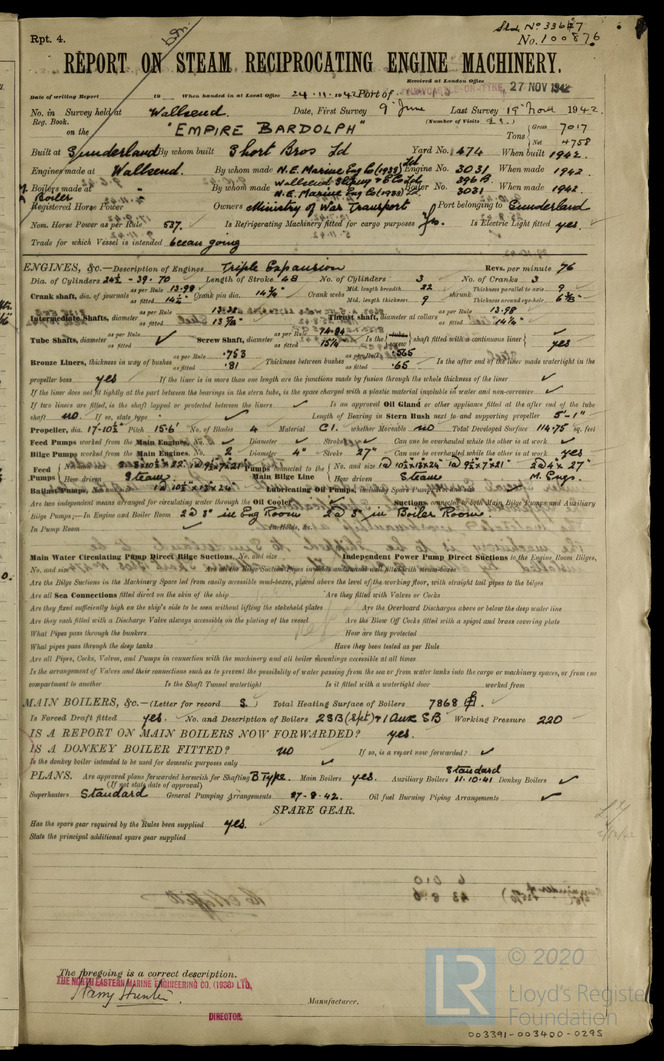 Rpt. 4.
No. 100876
REPORT ON STEAM RECIPROCATING ENGINE MACHINERY.
Received at London Office
27 NOV 1942
Date of writing Report 19 When handed in at Local Office 24·11·1942 Port of
No. in Survey held at Wallsend. Date, First Survey 9 June Last Survey 15 Nov 1942.
Reg. Book. (Number of Visits
on the "EMPIRE BARDOLPH" Tons Gross 7017
Net 4758
Built at Sunderland By whom built Short Bros Ld Yard No. 474 When built 1942.
Engines made at Wallsend. By whom made N.E. Marine Eng Co (1938) Ld Engine No. 3031 When made 1942.
Boilers made at By whom made Boiler No. 3031 When made 1942.
N.E. Marine Eng Co (1938)
Registered Horse Power Owners Ministry of War Transport Port belonging to Sunderland
Nom. Horse Power as per Rule 537. Is Refrigerating Machinery fitted for cargo purposes Is Electric Light fitted yes.
Trade for which Vessel is intended Ocean going
ENGINES, &c.—Description of Engines Triple Expansion Revs. per minute 76
Dia. of Cylinders 24½ - 39 - 70 Length of Stroke 48 No. of Cylinders 3 No. of Cranks 3
Crank shaft, dia. of journals as per Rule 13·98 as fitted 14¼" Crank pin dia. 14¼" Crank webs Mid. length breadth 22 Thickness parallel to axis 9
Mid. length thickness 9 shrunk Thickness around eye-hole
Intermediate Shafts, diameter as per Rule as fitted Thrust shaft, diameter at collars as per Rule 13·98 as fitted 14¼"
Tube Shafts, diameter as per Rule as fitted Screw Shaft, diameter as per Rule as fitted 15¼ Is the shaft fitted with a continuous liner yes
Bronze Liners, thickness in way of bushes as per Rule ·753 as fitted ·81 Thickness between bushes as per Rule ·565 as fitted ·65 Is the after end of the liner made watertight in the
propeller boss yes If the liner is in more than one length are the junctions made by fusion through the whole thickness of the liner
If the liner does not fit tightly at the part between the bearings in the stern tube, is the space charged with a plastic material insoluble in water and non-corrosive
If two liners are fitted, is the shaft lapped or protected between the liners Is an approved Oil Gland or other appliance fitted at the after end of the tube
shaft no. If so, state type Length of Bearing in Stern Bush next to and supporting propeller 5'-1"
Propeller, dia. 17-10½" Pitch 15·6' No. of Blades 4 Material C.I. whether Moveable no Total Developed Surface 114·75 sq. feet
Feed Pumps worked from the Main Engines, No. Diameter Stroke Can one be overhauled while the other is at work
Bilge Pumps worked from the Main Engines, No. 2 Diameter 4" Stroke 27" Can one be overhauled while the other is at work yes
Feed Pumps No. and size How driven Steam Pumps connected to the Main Bilge Line No. and size How driven Steam M. Engs.
Ballast Pumps, No. and size Lubricating Oil Pumps,
Are two independent means arranged for circulating water through the Oil Cooler Suctions, connected to both Main Bilge Pumps and Auxiliary
Bilge Pumps;—In Engine and Boiler Room 2 @ 3" in Eng Room 2 @ 3" in Boiler Room.
In Pump Room In Holds, &c.
Main Water Circulating Pump Direct Bilge Suctions, No. and size Independent Power Pump Direct Suctions to the Engine Room Bilges,
No. and size
Are the Bilge Suctions in the Machinery Space led from easily accessible mud-boxes, placed above the level of the working floor, with straight tail pipes to the bilges
Are all Sea Connections fitted direct on the skin of the ship Are they fitted with Valves or Cocks
Are they fixed sufficiently high on the ship's side to be seen without lifting the stokehold plates Are the Overboard Discharges above or below the deep water line
Are they each fitted with a Discharge Valve always accessible on the plating of the vessel Are the Blow Off Cocks fitted with a spigot and brass covering plate
What Pipes pass through the bunkers How are they protected
What pipes pass through the deep tanks Have they been tested as per Rule
Are all Pipes, Cocks, Valves, and Pumps in connection with the machinery and all boiler mountings accessible at all times
Is the arrangement of Valves and their connections such as to prevent the possibility of water passing from the sea or from water tanks into the cargo or machinery spaces, or from one
compartment to another Is the Shaft Tunnel watertight Is it fitted with a watertight door worked from
MAIN BOILERS, &c.—(Letter for record S.) Total Heating Surface of Boilers 7868
Is Forced Draft fitted yes. No. and Description of Boilers 2 SB (Spt) + 1 Aux SB Working Pressure 220
IS A REPORT ON MAIN BOILERS NOW FORWARDED? yes.
IS A DONKEY BOILER FITTED? no If so, is a report now forwarded?
Is the donkey boiler intended to be used for domestic purposes only
PLANS. Are approved plans forwarded herewith for Shafting B Type. Main Boilers yes. Auxiliary Boilers Standard 11·10·41 Donkey Boilers
(If not state date of approval)
Superheaters Standard General Pumping Arrangements 27·8·42. Oil fuel Burning Piping Arrangements
SPARE GEAR.
Has the spare gear required by the Rules been supplied yes.
State the principal additional spare gear supplied
The foregoing is a correct description.
THE NORTH EASTERN MARINE ENGINEERING CO. (1938) LTD.
Harry Hunter.
Manufacturer.
DIRECTOR.
© 2020
LR
Lloyd's Register
Foundation
003391-003400-0295